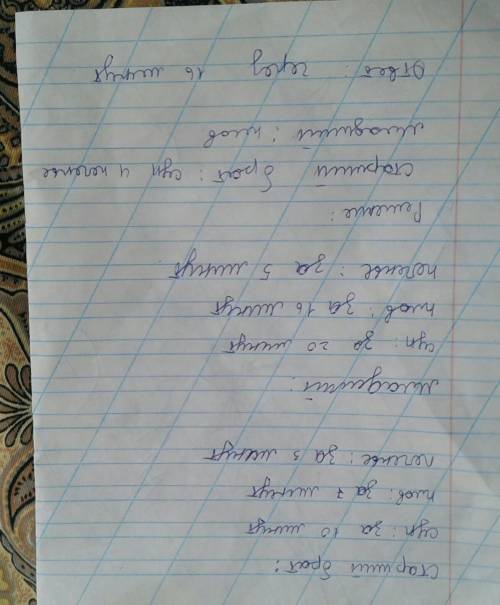 Старший брат:
суп: за 10 минут
плов: за 7 минут
печенье: за 3 минут
Младший:
суп: за 20 минут
плов: за 16 минут
печенье: за 5 минут
Решение:
Старший брат: суп и печенье
младший: плов
Ответ: через 16 минут